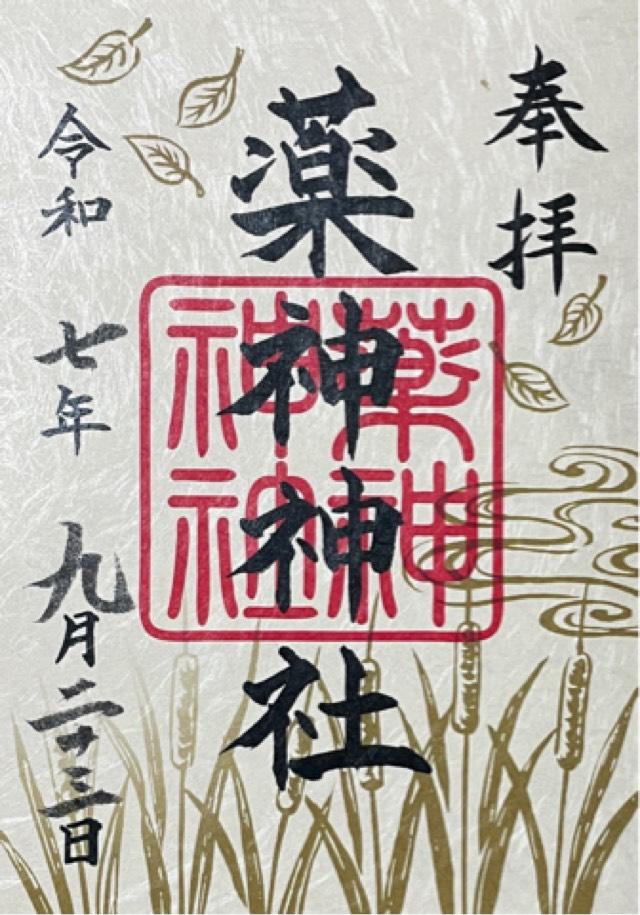 奉拝
薬神神社
薬神
神社
令和七年九月二十三日